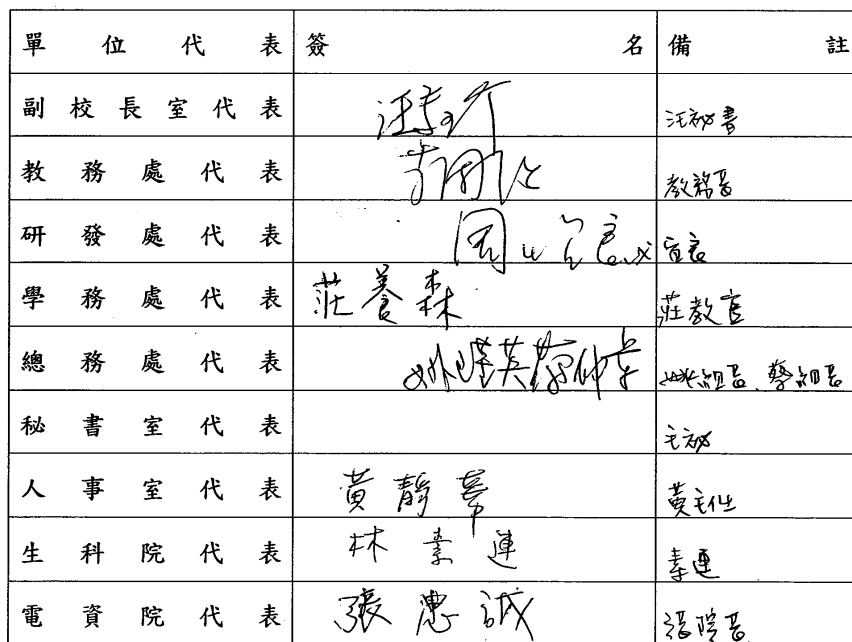 單位代表 簽名 備註
副校長室代表 汪秘書
教務處代表 教務長
研發處代表
學務處代表 莊養森 莊教官
總務處代表 姚組長、蔡組長
秘書室代表 主秘
人事室代表 黃靜 黃主任
生科院代表 林素連 素連
電資院代表 張惠誠 張院長